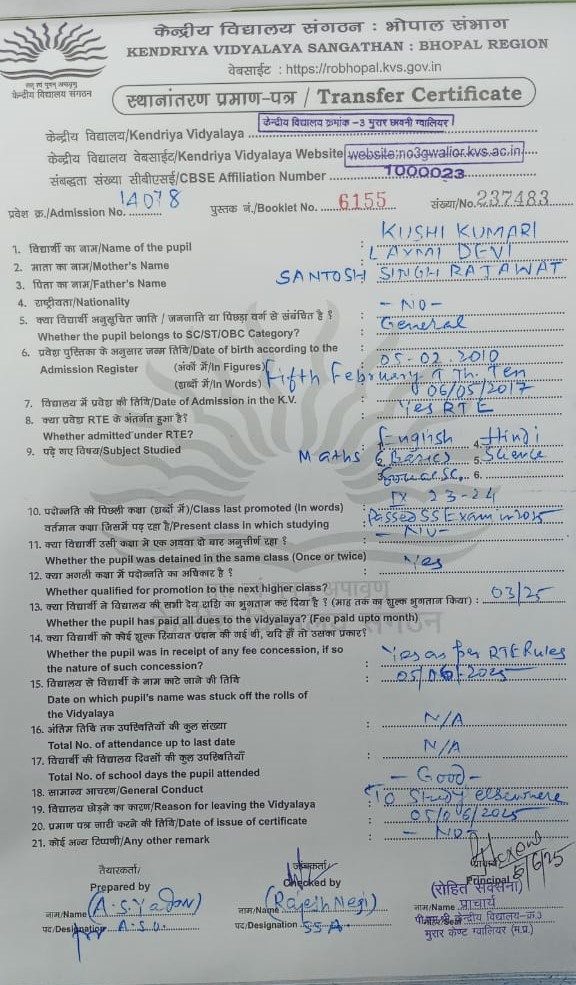 केन्द्रीय विद्यालय संगठन : भोपाल संभाग
KENDRIYA VIDYALAYA SANGATHAN : BHOPAL REGION
वेबसाईट : https://robhopal.kvs.gov.in
केन्द्रीय विद्यालय संगठन
स्थानांतरण प्रमाण-पत्र / Transfer Certificate
केन्द्रीय विद्यालय/Kendriya Vidyalaya केन्द्रीय विद्यालय क्रमांक –3 मुरार छावनी ग्वालियर
केन्द्रीय विद्यालय वेबसाईट/Kendriya Vidyalaya Website website:no3gwalior.kvs.ac.in
संबद्धता संख्या सीबीएसई/CBSE Affiliation Number 1000023
प्रवेश क्र./Admission No. 14078 पुस्तक नं./Booklet No. 6155 संख्या/No. 237483
1. विद्यार्थी का नाम/Name of the pupil : KUSHI KUMARI
2. माता का नाम/Mother's Name : LAXMI DEVI
3. पिता का नाम/Father's Name : SANTOSH SINGH RATAWAT
4. राष्ट्रीयता/Nationality :
5. क्या विद्यार्थी अनुसूचित जाति / जनजाति या पिछड़ा वर्ग से संबंधित है ? : - NO -
Whether the pupil belongs to SC/ST/OBC Category? : General
6. प्रवेश पुस्तिका के अनुसार जन्म तिथि/Date of birth according to the
Admission Register (अंकों में/In Figures) : 05-02.2010
(शब्दों में/In Words) Fifth February T. Th. Ten
7. विद्यालय में प्रवेश की तिथि/Date of Admission in the K.V. : 06/05/2017
8. क्या प्रवेश RTE के अंतर्गत हुआ है? : Yes RTE
Whether admitted under RTE?
9. पढ़े गए विषय/Subject Studied 1. English 4. Hindi
Maths (Basic) 5. Science
3. Social Sc. 6.
10. पदोन्नति की पिछली कक्षा (शब्दों में)/Class last promoted (In words) : IX 23-24
वर्तमान कक्षा जिसमें पढ़ रहा है/Present class in which studying : Passed SS Exam in 2025
11. क्या विद्यार्थी उसी कक्षा में एक अथवा दो बार अनुत्तीर्ण रहा ? : - NO -
Whether the pupil was detained in the same class (Once or twice)
12. क्या अगली कक्षा में पदोन्नति का अधिकार है ? : Yes
Whether qualified for promotion to the next higher class?
13. क्या विद्यार्थी ने विद्यालय की सभी देय राशि का भुगतान कर दिया है ? (माह तक का शुल्क भुगतान किया) : 03/25
Whether the pupil has paid all dues to the vidyalaya? (Fee paid upto month)
14. क्या विद्यार्थी को कोई शुल्क रियायत प्रदान की गई थी, यदि हाँ तो उसका प्रकार?
Whether the pupil was in receipt of any fee concession, if so : Yes as per RTE Rules
the nature of such concession?
15. विद्यालय से विद्यार्थी के नाम काटे जाने की तिथि : 05/06/2025
Date on which pupil's name was stuck off the rolls of
the Vidyalaya
16. अंतिम तिथि तक उपस्थितियों की कुल संख्या : N/A
Total No. of attendance up to last date
17. विद्यार्थी की विद्यालय दिवसों की कुल उपस्थितियाँ : N/A
Total No. of school days the pupil attended
18. सामान्य आचरण/General Conduct : - Good -
19. विद्यालय छोड़ने का कारण/Reason for leaving the Vidyalaya : To Study elsewhere
20. प्रमाण पत्र जारी करने की तिथि/Date of issue of certificate : 05/06/2025
21. कोई अन्य टिप्पणी/Any other remark :
तैयारकर्ता/ जांचकर्ता/
Prepared by Checked by Principal
(A.S. Yadav) (Rajesh Negi) (रोहित सक्सेना)
नाम/Name नाम/Name नाम/Name प्राचार्य
पद/Designation A.S.O. पद/Designation SSA केन्द्रीय विद्यालय-क्र.3
मुरार केण्ट ग्वालियर (म.प्र.)